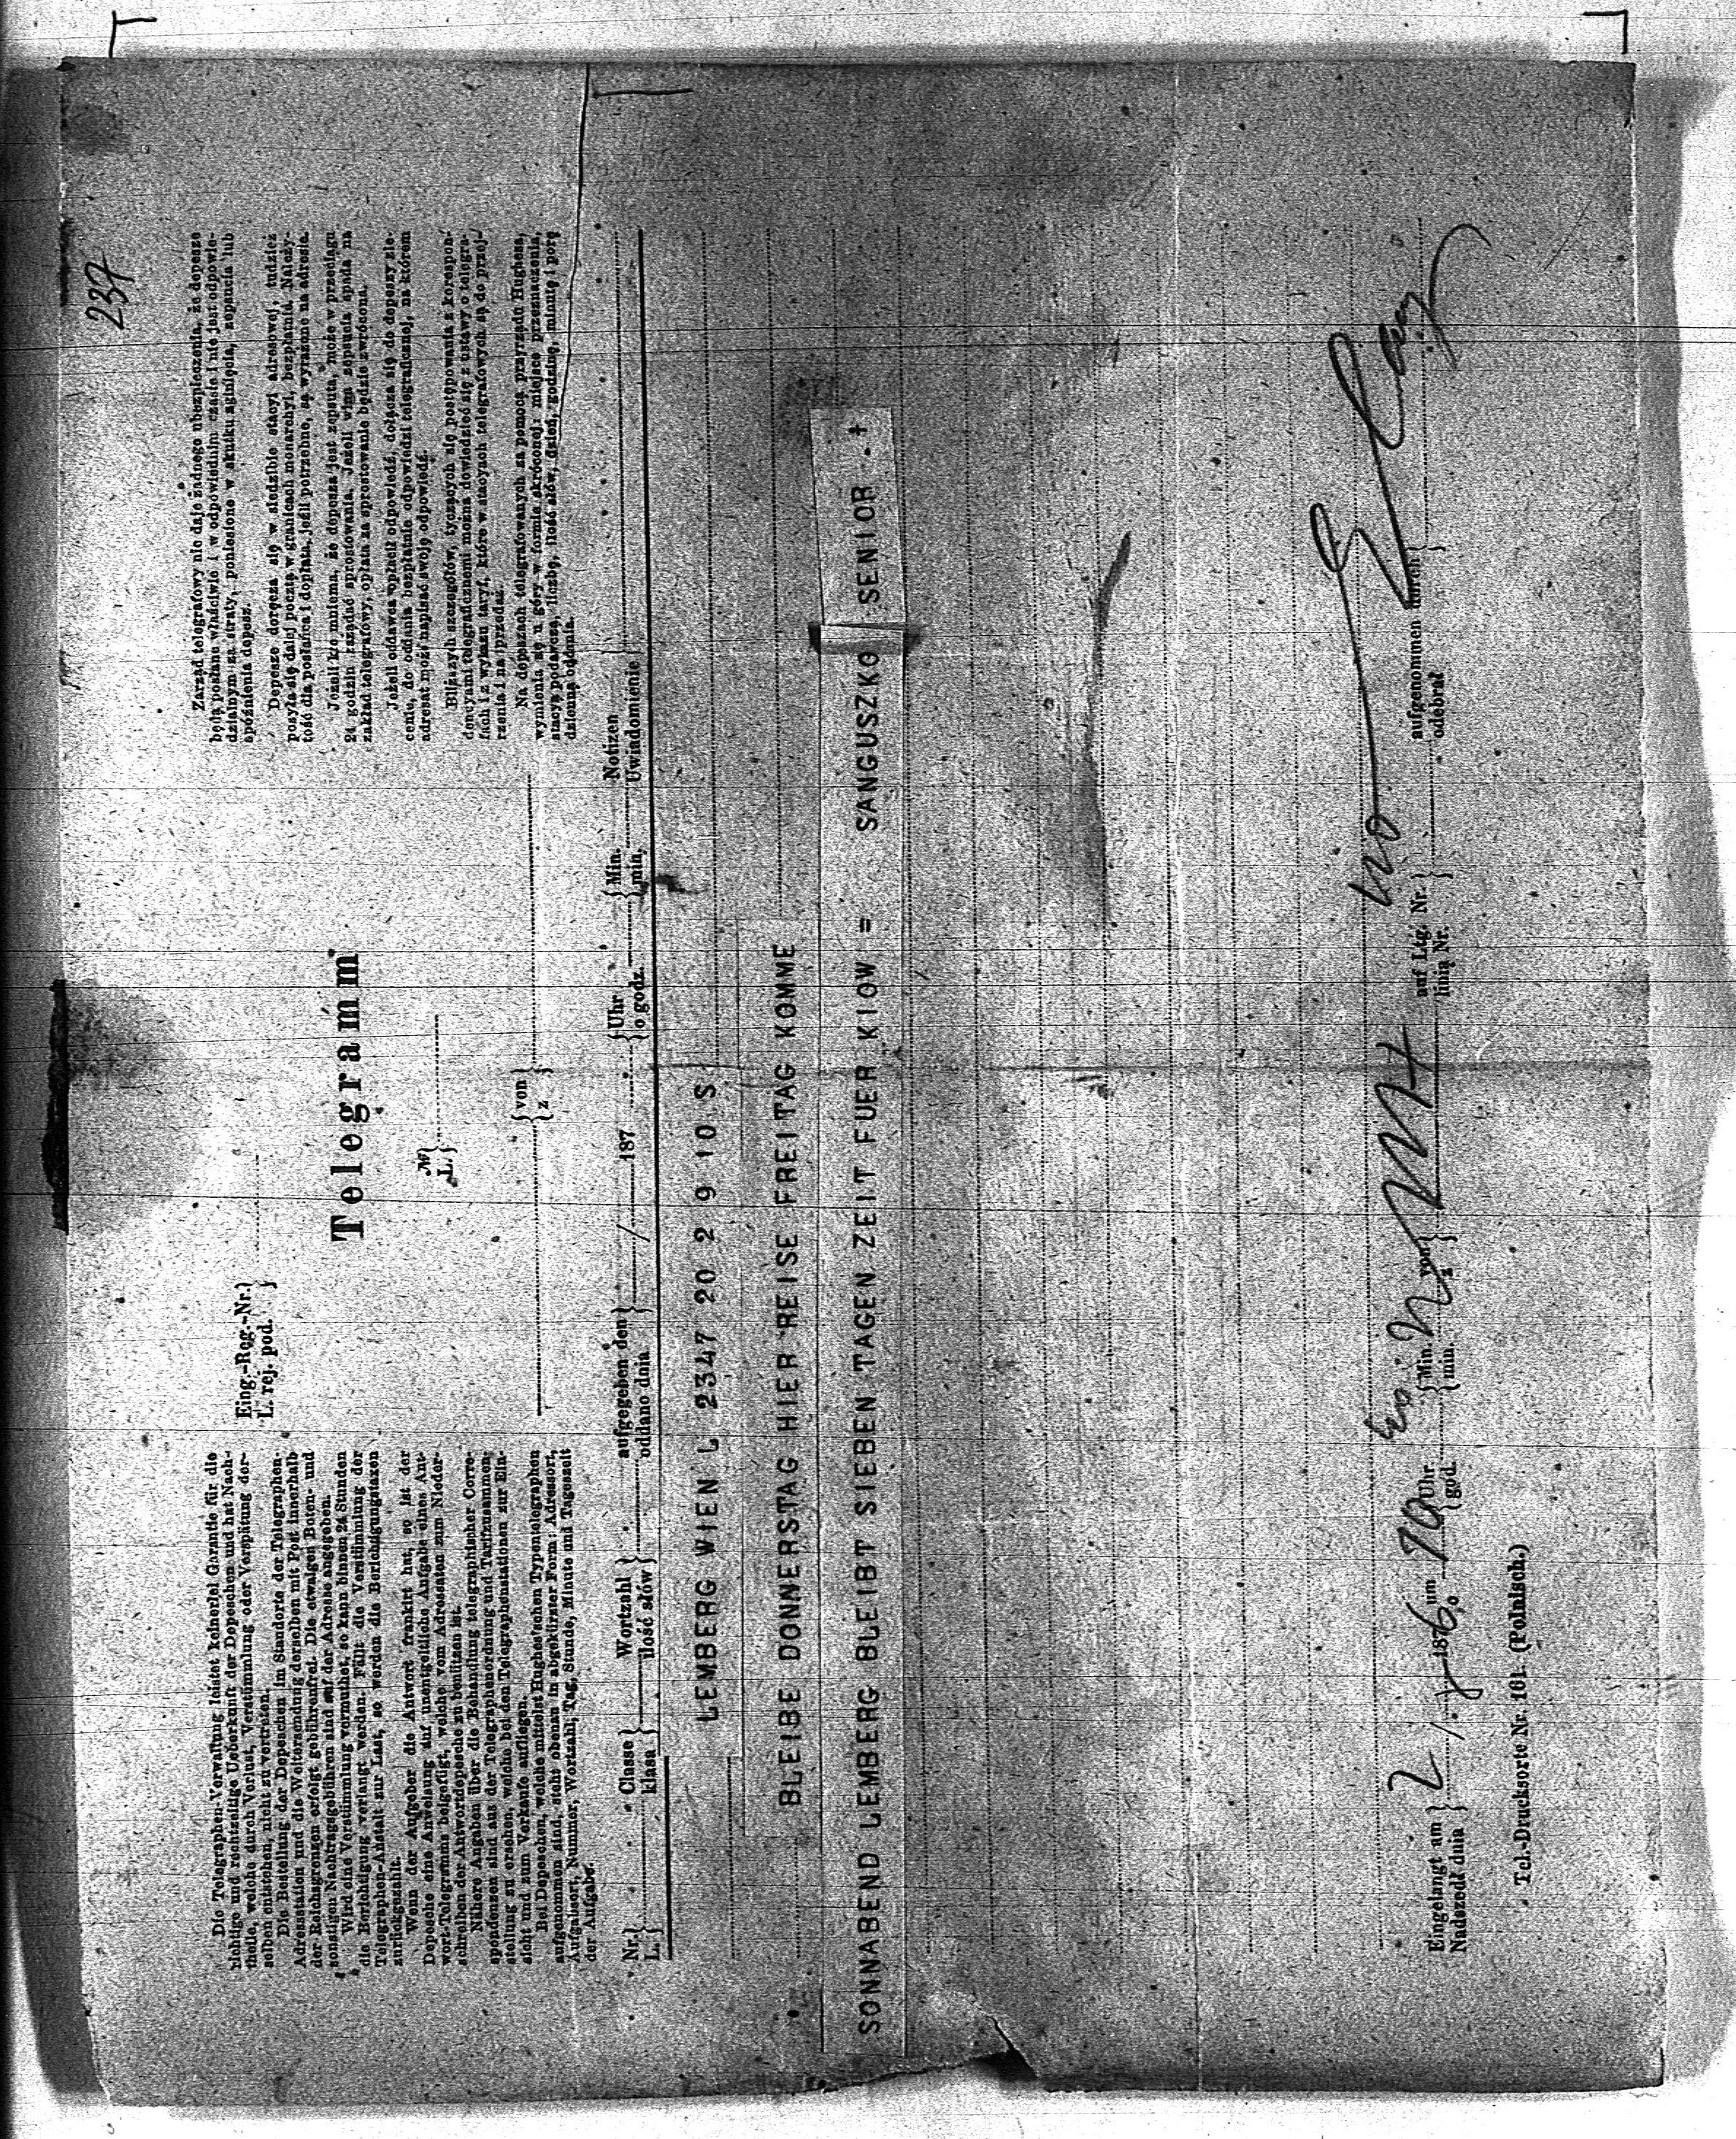 237
Die Telegraphen-Verwaltung leistet keinerlei Garantie für die
richtige und rechtzeitige Ueberkunft der Depeschen und hat Nach-
theile, welche durch Verlust, Verstümmlung oder Verspätung der-
selben entstehen, nicht zu vertreten.
Die Bestellung der Depeschen im Standorte der Telegraphen-
Adressstation und die Weitersendung derselben mit Post innerhalb
der Reichsgrenzen erfolgt gebührenfrei. Die etwaigen Boten- und
sonstigen Nachtragsgebühren sind auf der Adresse angegeben.
Wird eine Verstümmlung vermuthet, so kann binnen 24 Stunden
die Berichtigung verlangt werden. Fällt die Verstümmlung der
Telegraphen-Anstalt zur Last, so werden die Berichtigungstaxen
zurückgezahlt.
Wenn der Aufgeber die Antwort frankirt hat, so ist der
Depesche eine Anweisung auf unentgeltliche Aufgabe eines Ant-
wort-Telegramms beigefügt, welche vom Adressaten zum Nieder-
schreiben der Antwortdepesche zu benützen ist.
Nähere Angaben über die Behandlung telegraphischer Corre-
spondenzen sind aus der Telegraphenordnung und Tarifzusammen-
stellung zu ersehen, welche bei den Telegraphenstationen zur Ein-
sicht und zum Verkaufe aufliegen.
Bei Depeschen, welche mittelst Hughes'schen Typentelegraphen
aufgenommen sind, steht obenan in abgekürzter Form: Adressort,
Aufgabsort, Nummer, Wortzahl, Tag, Stunde, Minute und Tageszeit
der Aufgabe.
Eing.-Reg.-Nr.
L. rej. pod.
Telegramm
№
L.
von
z
Zarząd telegrafowy nie daje żadnego ubezpieczenia, że depesze
będą posłane właściwie i w odpowiednim czasie i nie jest odpowie-
dzialnym za straty, poniesione w skutku zginięcia, zepsucia lub
spóźnienia depesz.
Depesze doręcza się w siedzibie stacyi adresowej, tudzież
posyła się dalej pocztą w granicach monarchyi, bezpłatnie. Należy-
tość dla posłańca i dopłata, jeźli potrzebne, są wyrażone na adresie.
Jeżeli kto mniema, że depesza jest zepsuta, może w przeciągu
24 godzin zażądać sprostowania. Jeżeli wina zepsucia spada na
zakład telegrafowy, opłata za sprostowanie będzie zwrócona.
Jeżeli oddawca opłacił odpowiedź, dołącza się do depeszy zle-
cenie, do oddania bezpłatnie odpowiedzi telegraficznej, na którem
adresat może napisać swoję odpowiedź.
Bliższych szczegółów, tyczących się postępowania z korespon-
dencyami telegraficznemi można dowiedzieć się z ustawy o telegra-
fach i z wykazu taryf, które w stacyach telegrafowych są do przej-
rzenia i na sprzedaż.
Na depeszach telegrafowanych za pomocą przyrządu Hughesa,
wymienia się u góry w formie skróconej: miejsce przeznaczenia,
stacyę podawczą, liczbę, ilość słów, dzień, godzinę, minutę i porę
dzienną oddania.
Nr. Classe Wortzahl aufgegeben den / 187 Uhr Min. Notizen
L. klasa ilość słów oddano dnia o godz. min. Uwiadomienie
LEMBERG WIEN L 2347 20 2 9 10 S
BLEIBE DONNERSTAG HIER REISE FREITAG KOMME
SONNABEND LEMBERG BLEIBT SIEBEN TAGEN ZEIT FUER KIOW = SANGUSZKO SENIOR .+
Eingelangt am 2/ 187 6 um 10 Uhr Min. von auf Ltg. Nr. aufgenommen durch
Nadszedł dnia o god. min. z linią Nr. odebrał
Tel.-Drucksorte Nr. 161. (Polnisch.)